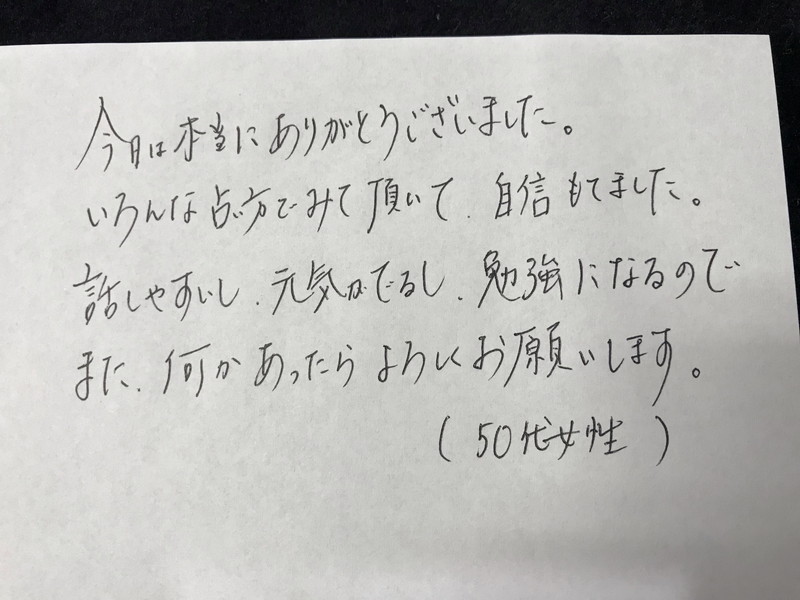 今日は本当にありがとうございました。
いろんな占い方でみて頂いて、自信もてました。
話しやすいし、元気がでるし、勉強になるので
また、何かあったらよろしくお願いします。
(50代女性)